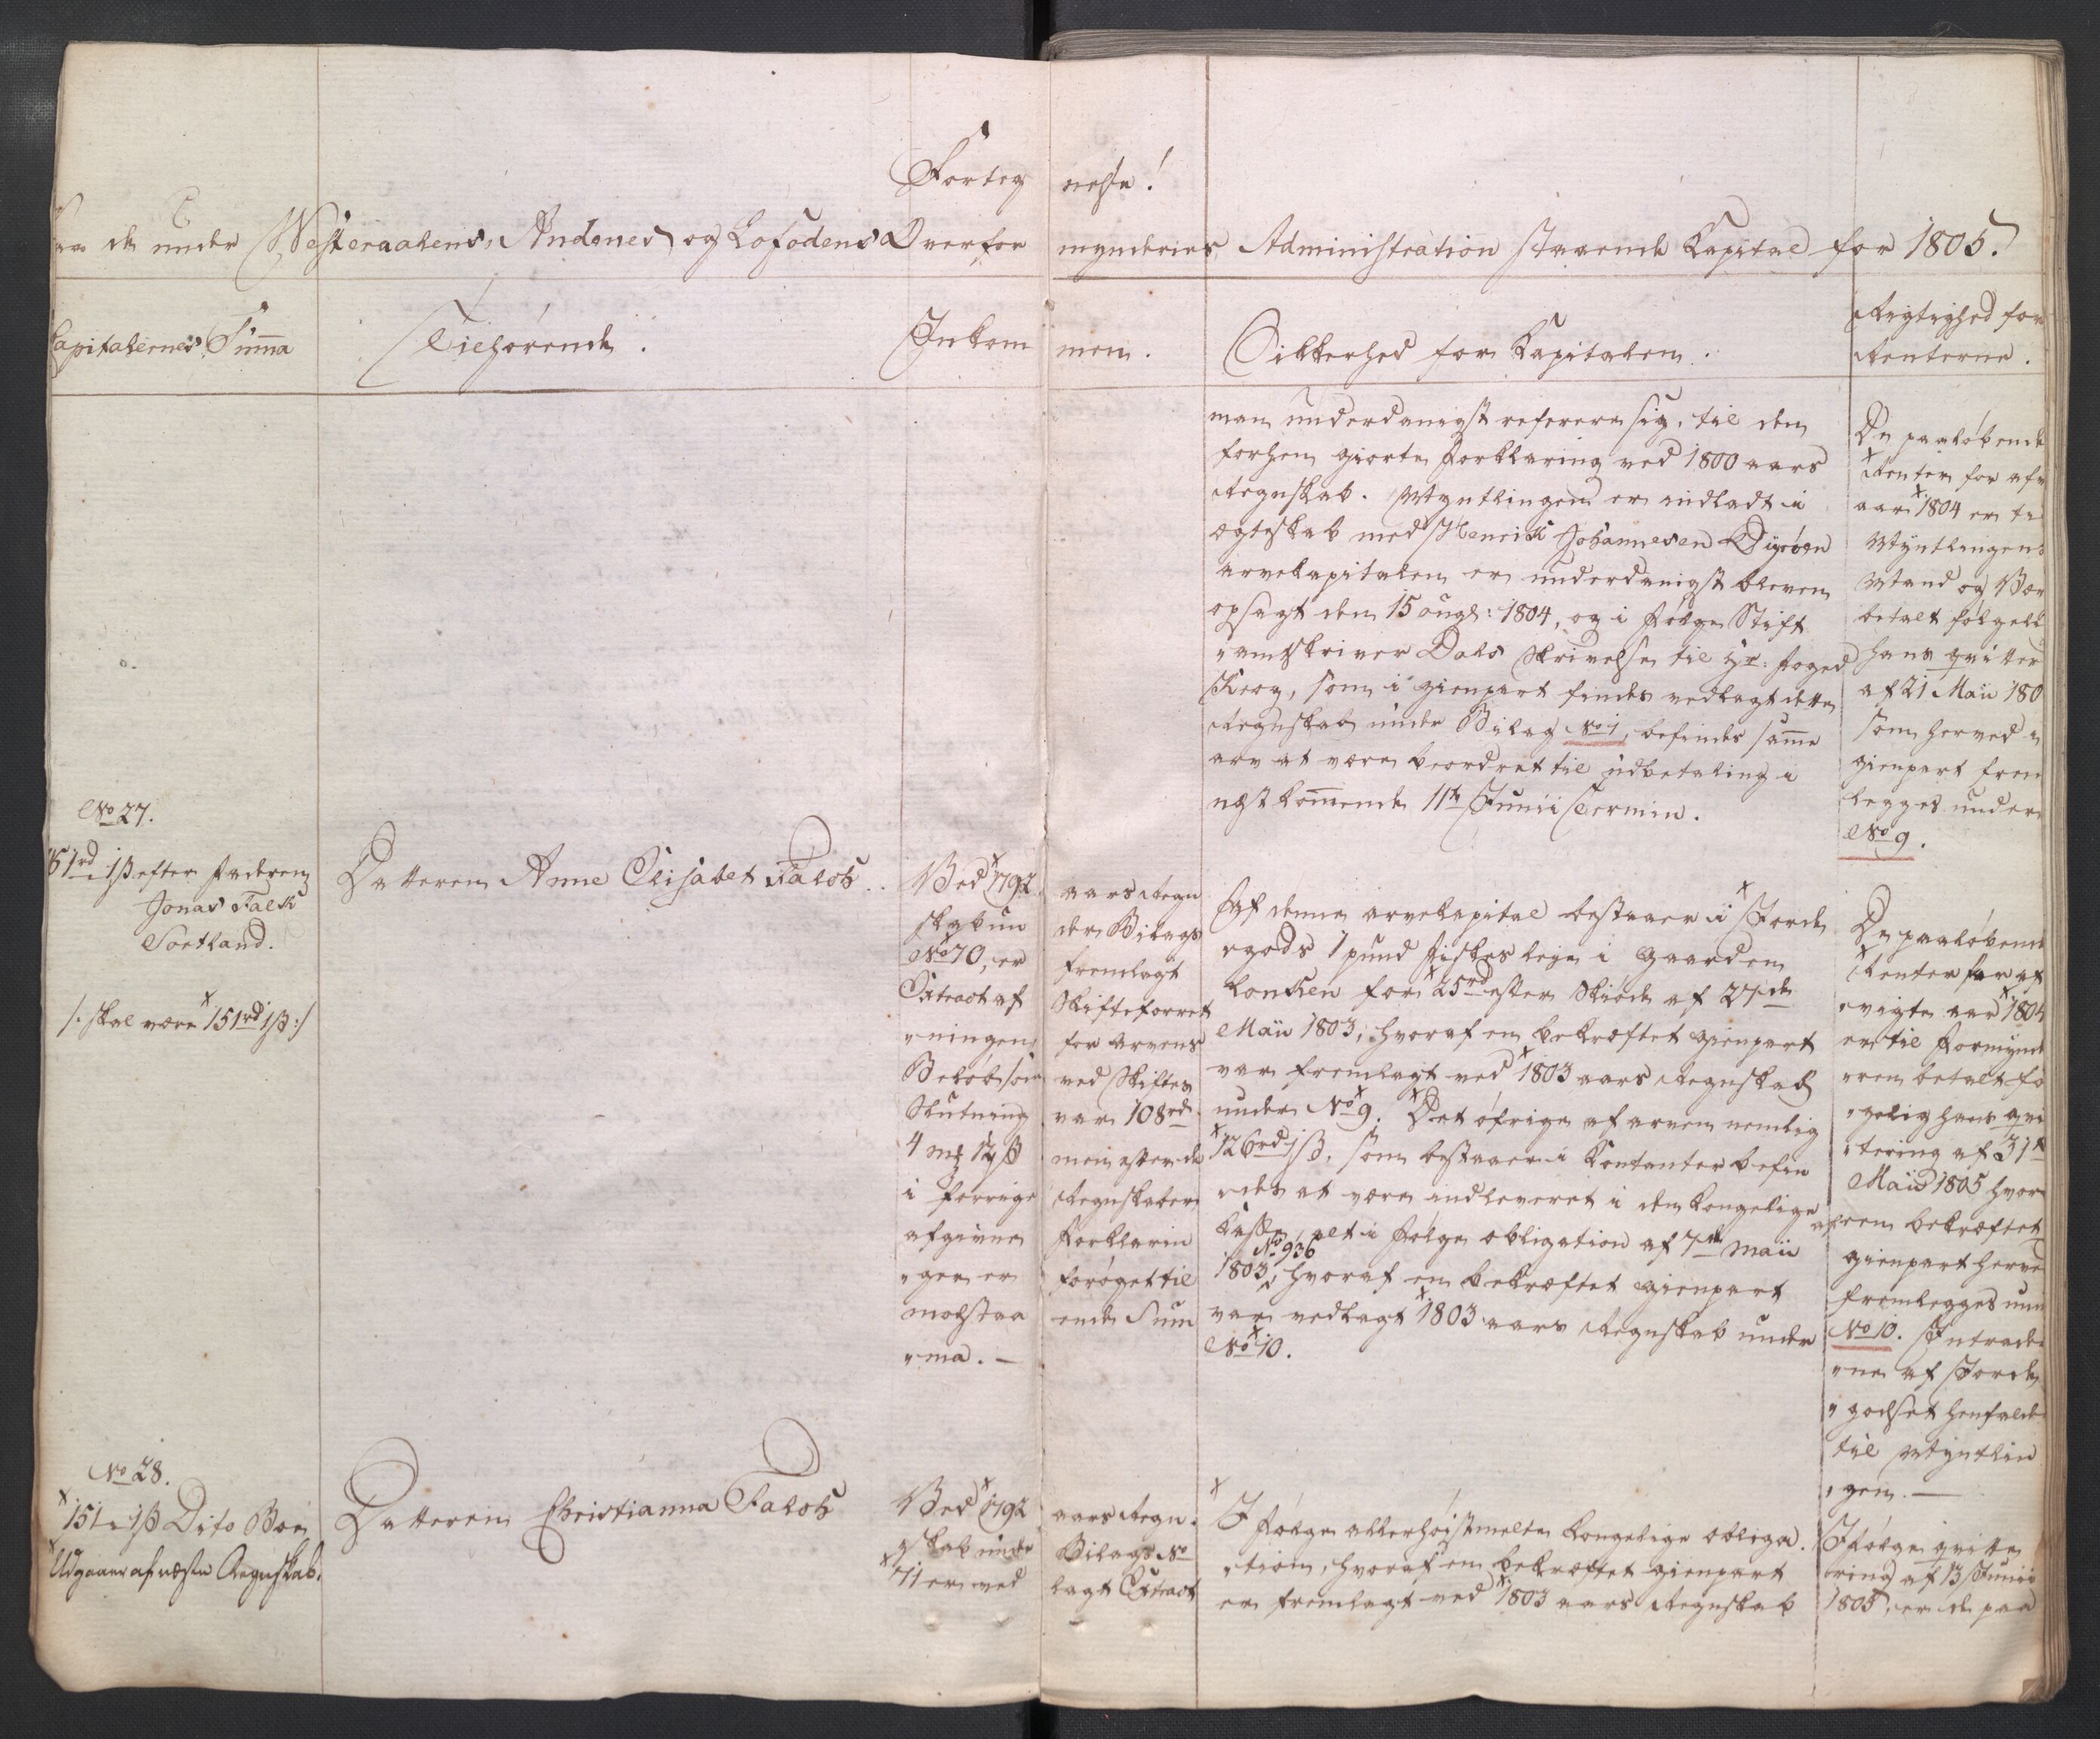 Forteg nelse!
de under Westeraalens, Andenes og Lofodens Overfor mynderies Administration staaende Kapital for 1805.
Capitalernes Summa
Tilhørende.
Inkom men.
Sikkerhed for Kapitalen.
Rigtighed for
Renterne.
man underdanigst referere sig, til den
forhen giorte Forklaring ved 1800 aars
Regnskab. Myntlingen er indladt i
ægteskab med Henrich Johannesen Dyrøen
arvekapitalen er underdanigst bleven
opsagt den 15 augs: 1804, og i Følge Stift
"amtskriver Dahs Skrivelse til Hr: Foged
Krog, som i gienpart findes vedlagt dette
Regnskab under Bilag No 1, befindes samme
arv at være beordret til udbetaling i
næstkommende 11te Junii Termin.
De paaløbende
Renter for afv
aar 1804 er til
Myntlingens
Mand og Vær
betalt følgelig
hans qvitter
af 21 Maii 180
som herved i
gienpart frem
legges under
No 9.
No 27.
151rd 1ß efter Faderen
Jonas Falch
Sortland.
/: skal være 151rd 1ß :/
Datteren Anne Elisabet Falch
Ved 1792
skab un
No 70, er
Extract af
"ningen
Beløb som
Slutning
4 mk 12ß
i forrige
afgivne
"gen er
modstaa
"ma. —
aars Regn
der Bilags
fremlagt
Skifteforret
for Arvens
ved Skiftes
var 108rd
men efter de
Regnskabers
Forklarin
forøget til
ende Sum
Af denne arvekapital bestaaer i Jorde
"gods 1 pund Fiskes leje i Gaarden
Lonken for 25rd efter Skiøde af 27de
Maii 1803, hvoraf en bekræftet gienpart
var fremlagt ved 1803 aars Regnskab
under No 9. Det øfrige af arven nemlig
126rd 1ß, som bestaaer i Contanter befin
"des at være indleveret i den kongelige
Kasse, alt i Følge obligation af 7de Maii
No 936
1803, hvoraf en bekræftet gienpart
var vedlagt 1803 aars Regnskab under
No 10.
De paaløbende
Renter for af
"vigte aar 1804
er til Formynd
"eren betalt føl
"gelig hans qvi
"tering af 31te
Maii 1805 hvor
af en bekræftet
gienpart herved
fremlegges un
No 10. Intrade
"ne af Jorde
"godset henfalde
til Myntlin
"gen. —
No 28.
151 " 1ß Dito Boe
Udgaaer af næste Regnskab.
Datteren Christianna Falch
Ved 1792
skab under
71 er ved
aars Regn.
Bilags No
lagt Extract
I Følge allerhøistmelte kongelige obliga.
"tion, hvoraf en bekræftet gienpart
er fremlagt ved 1803 aars Regnskab
I Følge qvitte
ring af 13 Junii
1805, er de paa